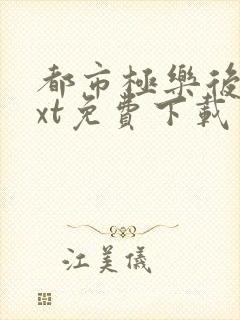 都市極樂後
xt免費下載
江美儀